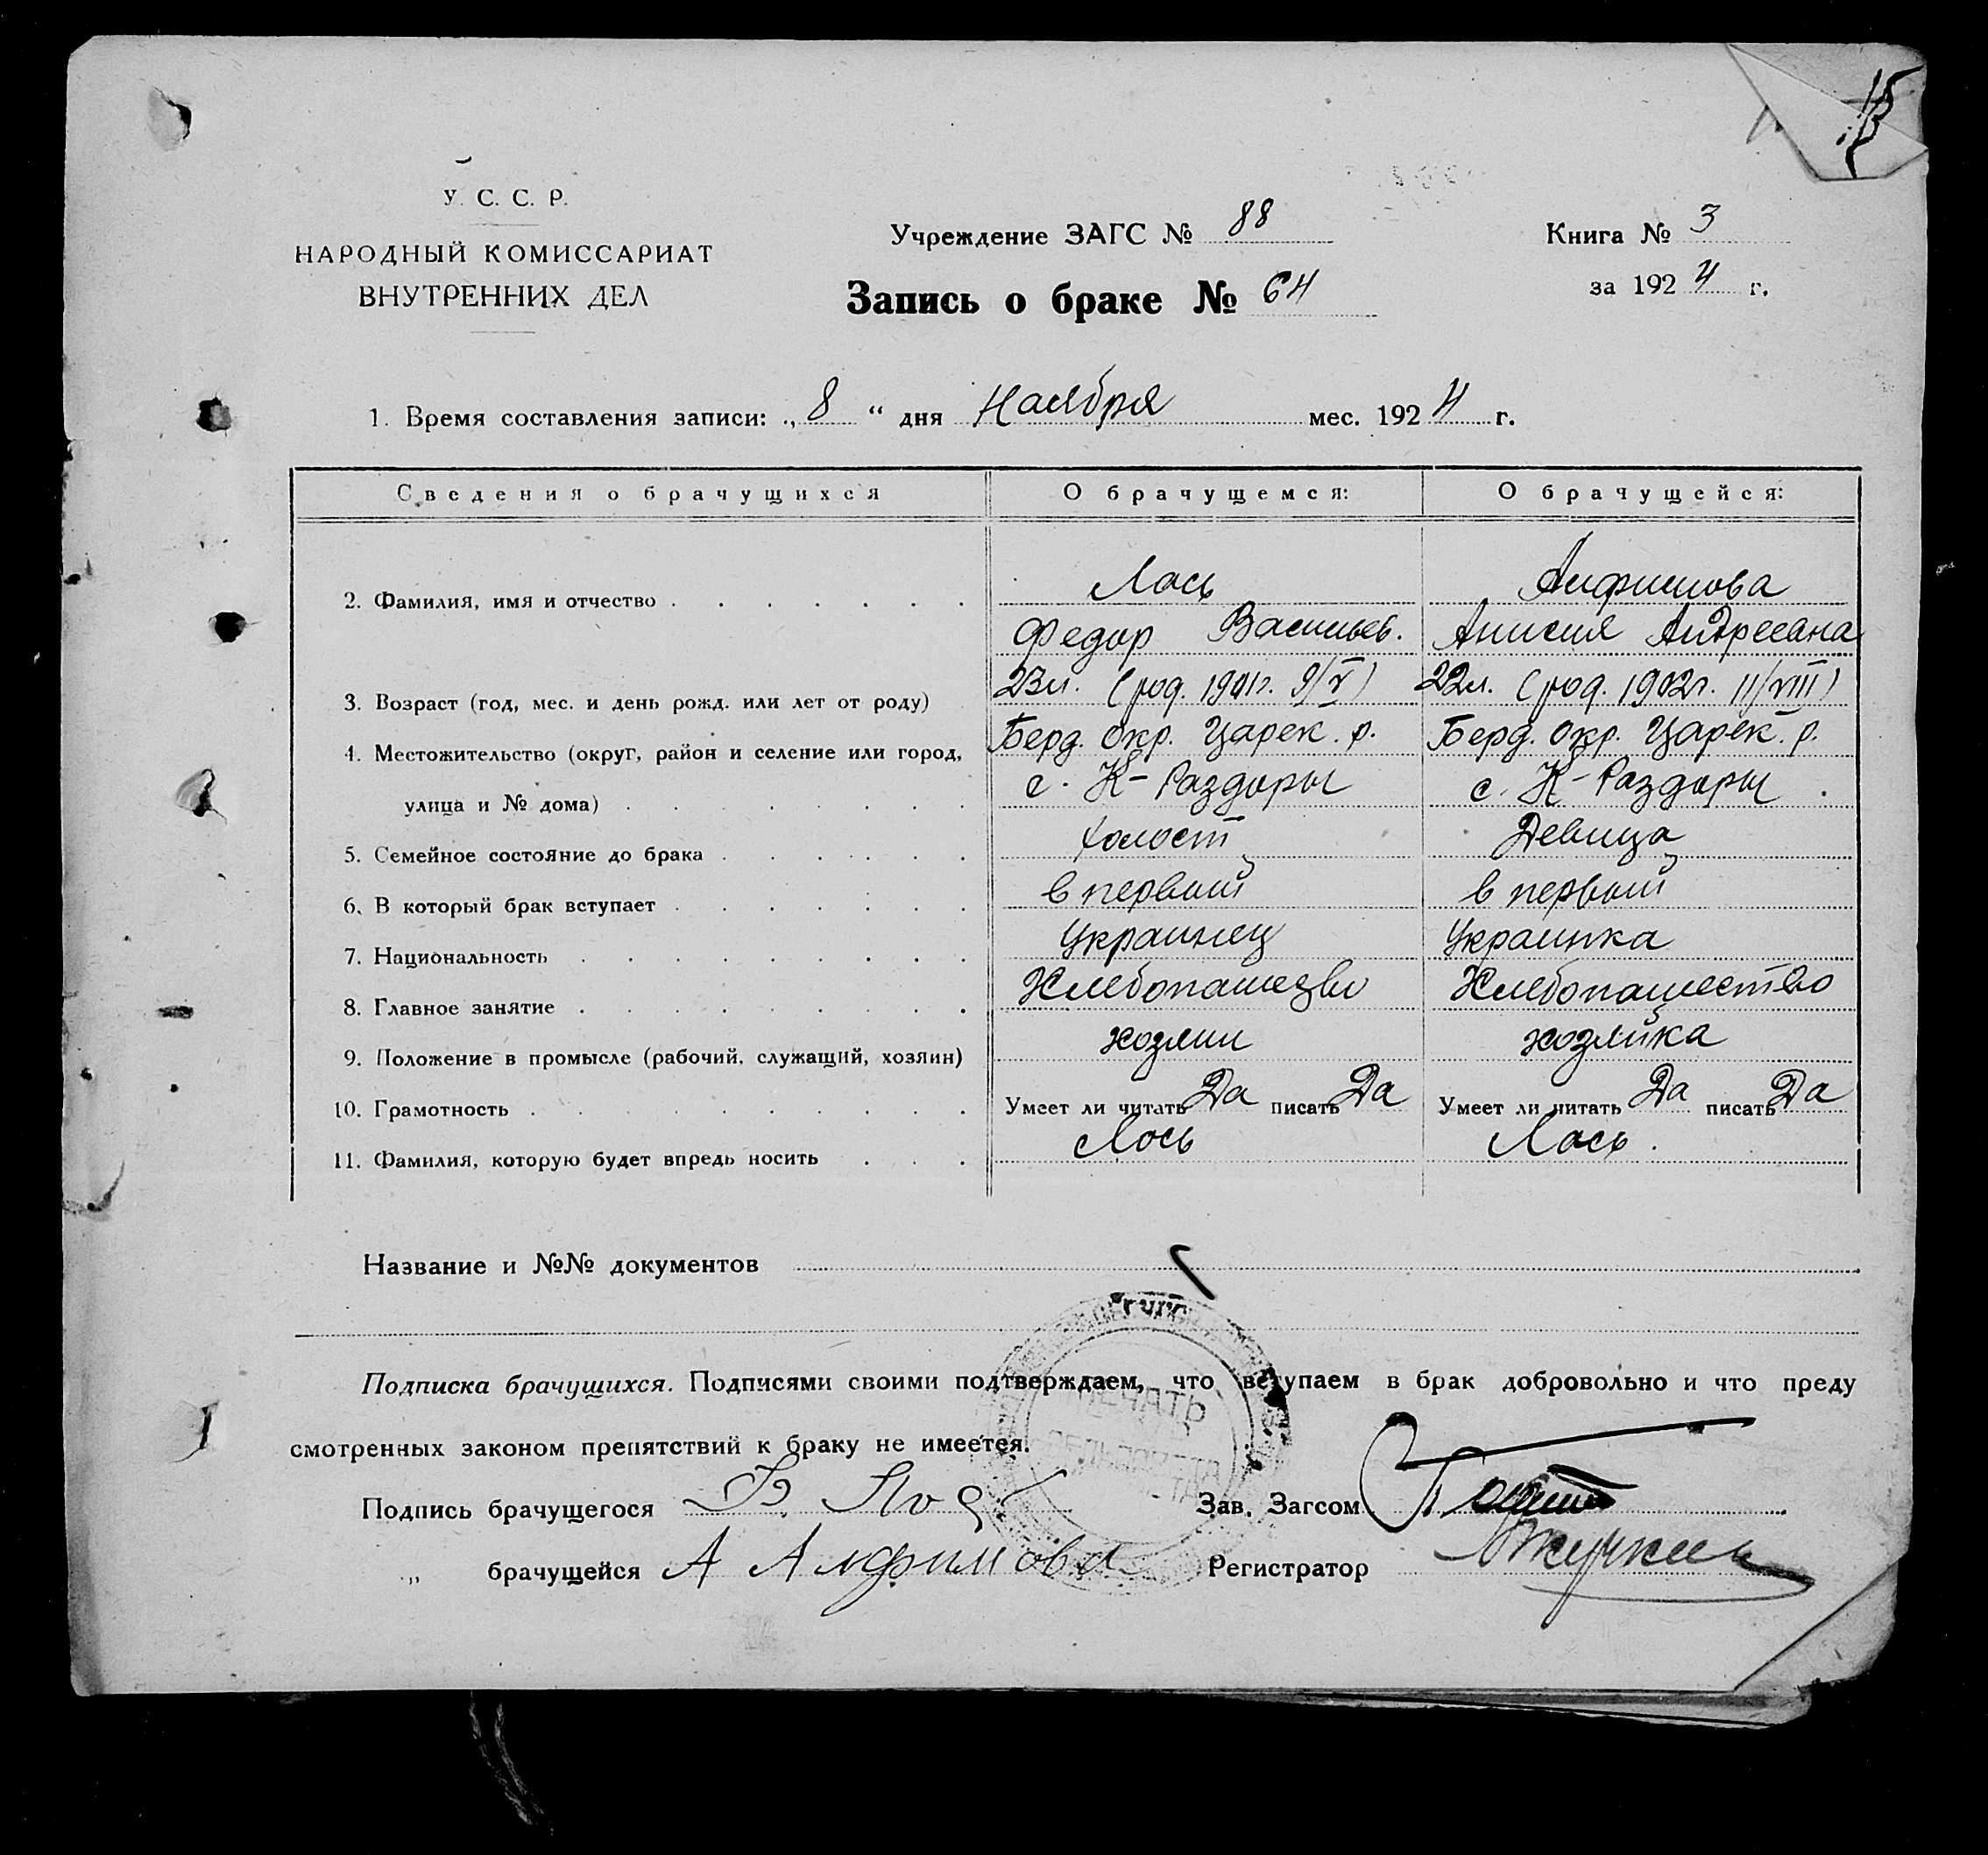 У. С. С. Р.
НАРОДНЫЙ КОМИССАРИАТ
ВНУТРЕННИХ ДЕЛ
Учреждение ЗАГС № 88
Книга № 3
Запись о браке № 64
за 1924 г.
1. Время составления записи: „8“ дня Ноября мес. 1924 г.
Сведения о брачущихся О брачущемся: О брачущейся:
2. Фамилия, имя и отчество Лось Алфимова
Федор Васильев. Анисия Андреевна
3. Возраст (год, мес. и день рожд. или лет от роду) 23л. (род. 1901г. 9/V) 22л. (род. 1902г. 11/VIII)
4. Местожительство (округ, район и селение или город, Берд. окр. Царек. р. Берд. окр. Царек. р.
улица и № дома) с. К-Раздоры с. К-Раздоры
5. Семейное состояние до брака холост Девица
6. В который брак вступает в первый в первый
7. Национальность Украинец Украинка
8. Главное занятие Хлебопашество Хлебопашество
9. Положение в промысле (рабочий, служащий, хозяин) хозяин хозяйка
10. Грамотность Умеет ли читать Да писать Да Умеет ли читать Да писать Да
11. Фамилия, которую будет впредь носить Лось Лось.
Название и №№ документов
Подписка брачущихся. Подписями своими подтверждаем, что вступаем в брак добровольно и что преду
смотренных законом препятствий к браку не имеется.
ПЕЧАТЬ
Подпись брачущегося Ф. Лось Зав. Загсом
„ брачущейся А Алфимова Регистратор